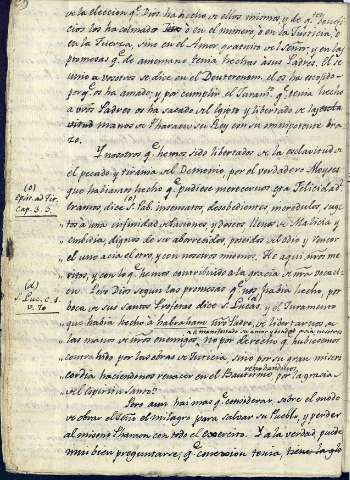 de la eleccion qe. Dios ha hecho de ellos mismos y de qe.
cios los ha colmado ò en el numero, ò en la Justicia, ò
en la Fuerza, sino en el Amor gratuito del Señor; y en las
promesas qe. de antemano tenia hechas à sus Padres. El
mo à vosotros se dice en el Deuteronom. el os ha escogido
porqe. os ha amado; y por cumplir el Juramto. qe. tenia hecho
à vros. Padres os ha sacado del Egipto y libertado de la escla
vitud manos de Pharaon su Rey con su omnipotente bra
zo.
Y nosotros qe. hemos sido libertados de la esclavitud de
el pecado y tirania del Demonio, por el verdadero Moyses
que habiamos hecho qe. pudiese merecernos esta Felicidad?
Eramos, dice Sn. Pab. insensatos, desobedientes, incredulos suge
tos à una infinidad de Pasiones, y deseos llenos de Malicia y
embidia, dignos de ser aborrecidos, poseidos del odio y rencor
el uno acia el otro, y con nosotros mismos. He aqui nros. me
ritos, y con lo qe. hemos contribuido à la gracia de nra. vocacion
Pero Dios segun las promesas qe. nos habia hecho, por
boca de sus santos Profetas dice S. Lucas, y el Juramento
que habia hecho à habraham nro. Padre, de libertarnos de
las manos de nros. enemigos, no por derecho qe. hubiesemos
contrahido por las obras de Justicia, sino por su gran miseri
cordia haciendonos renacer en el Bautismo por la gracia
del Espiritu Santo.
Pero aun hai mas qe. considerar, sobre el modo
de obrar el Señor el milagro para salvar su Pueblo, y perder
al mismo Pharaon con todo el exercito. Y à la verdad puede
mui bien preguntarse, qe. conexion tenia, tiene la
(c)
Epist. ad Tit.
Cap. 3. 3.
(d)
Luc. C. 1.
v. 70